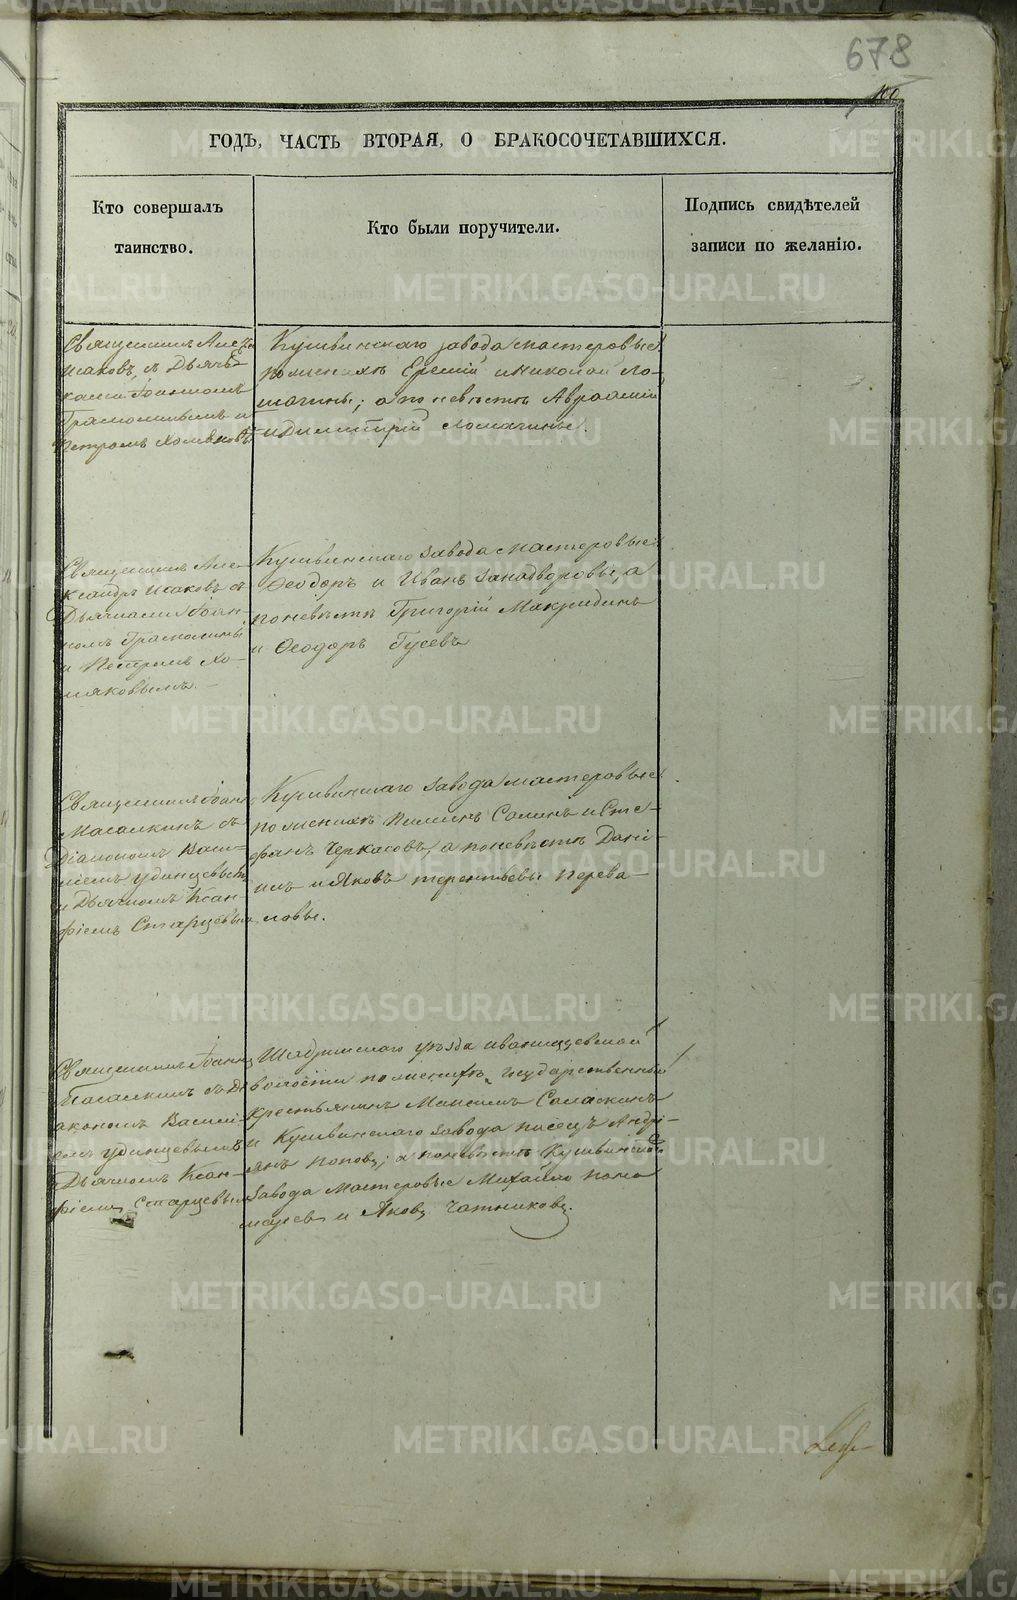 678
100
ГОДЪ, ЧАСТЬ ВТОРАЯ, О БРАКОСОЧЕТАВШИХСЯ.
Кто совершалъ
таинство.
Кто были поручители.
Подпись свидѣтелей
записи по желанію.
Священникъ Алек
Исаковъ, съ Дьячь
ками Іоанномъ
и
Петромъ Хомяковы
Кушвинскаго завода мастеровые
по женихѣ Еремѣй и Николай Ло-
магины; а по невѣстѣ Авраамій
и Димитрій Ломагины.
Священникъ Але-
ксандръ Исаковъ съ
Дьячками Іоан-
номъ
и Петромъ Хо-
мяковымъ.
Кушвинскаго завода мастеровые
Ѳеодоръ и Иванъ Занадворовы, а
по невѣстѣ Григорій Макридинъ
и Ѳеодоръ Гусевъ
Священникъ Іоаннъ
Масалкинъ съ
Діакономъ Васи-
ліемъ Удинцевымъ
и Дьячкомъ Ксан-
фіемъ Старцевым
Кушвинскаго завода мастеровые
по женихѣ Пименъ Салинъ и Сте-
фанъ Черкасовъ, а по невѣстѣ Дані-
илъ и Яковъ Терентьевы Перева-
ловы.
Священникъ Іоаннъ
Масалкинъ съ Ді
акономъ Васил-
емъ Удинцевымъ и
Дьячкомъ Ксан-
фіемъ Старцевым
Шадринскаго уѣзда Иванищевской
волости по женихѣ Государственный
крестьянинъ Максимъ Саласкинъ
и Кушвинскаго завода писецъ Андрі-
янъ Поповъ; а по невѣстѣ Кушвинскаго
завода мастеровые Михайло Поно
маревъ и Яковъ Чатниковъ.
METRIKI.GASO-URAL.RU